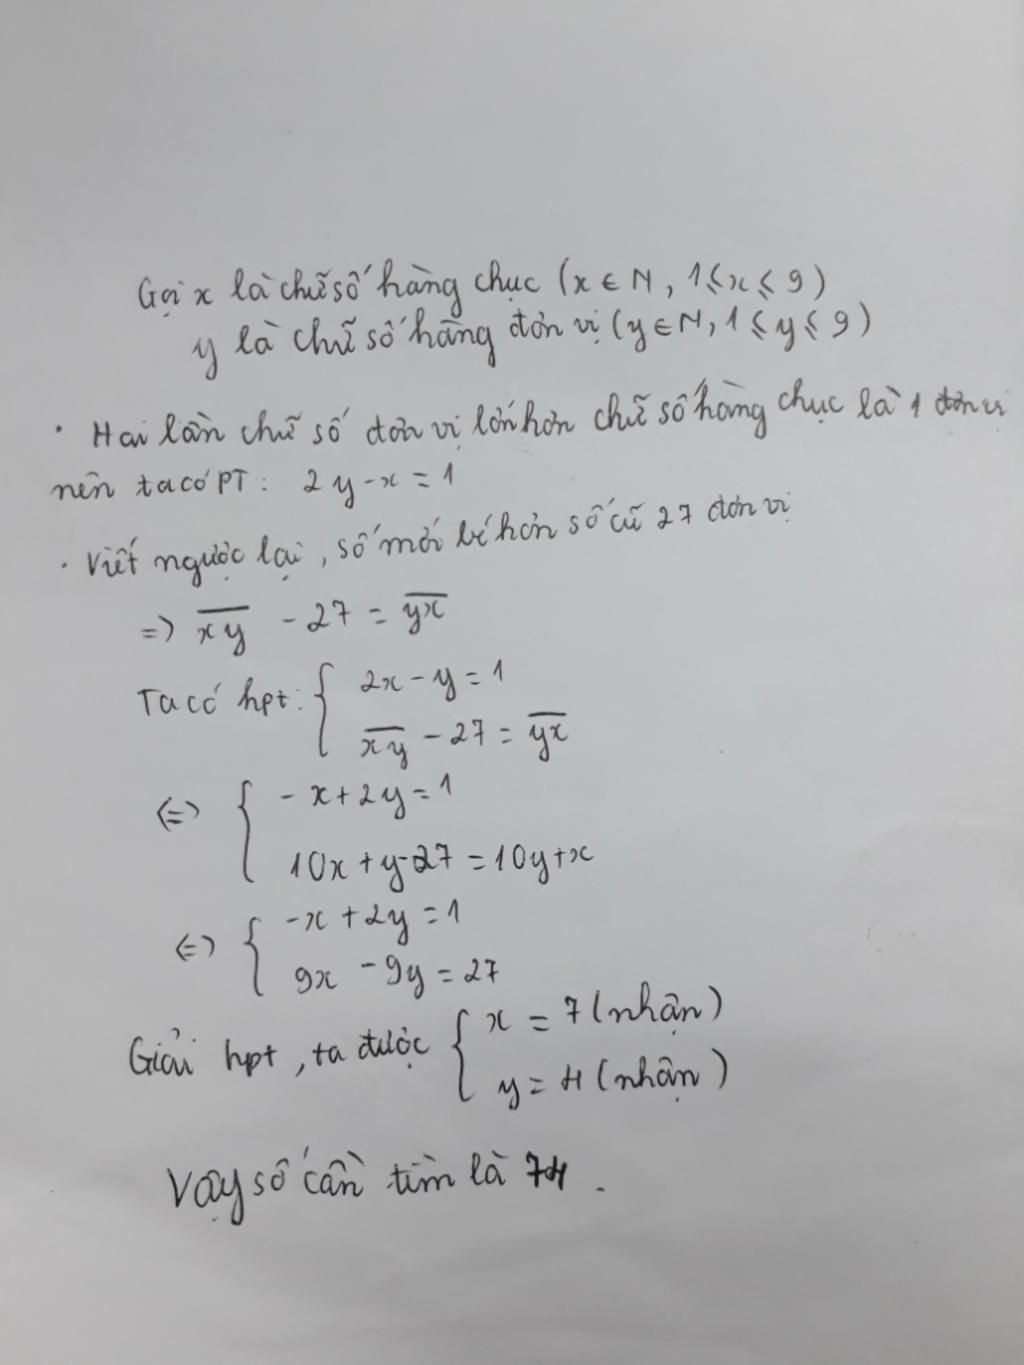 Gọi x là chữ số hàng chục (x ∈ N, 1 ⩽ x ⩽ 9)
y là chữ số hàng đơn vị (y ∈ N, 1 ⩽ y ⩽ 9)
• Hai lần chữ số đơn vị lớn hơn chữ số hàng chục là 1 đơn vị
nên ta có PT: 2y - x = 1
• Viết ngược lại, số mới bé hơn số cũ 27 đơn vị
=> \overline{xy} - 27 = \overline{yx}
Ta có hpt: { 2x - y = 1
\overline{xy} - 27 = \overline{yx}
<=> { - x + 2y = 1
10x + y - 27 = 10y + x
<=> { -x + 2y = 1
9x - 9y = 27
Giải hpt, ta được { x = 7 (nhận)
y = 4 (nhận)
Vậy số cần tìm là 74.